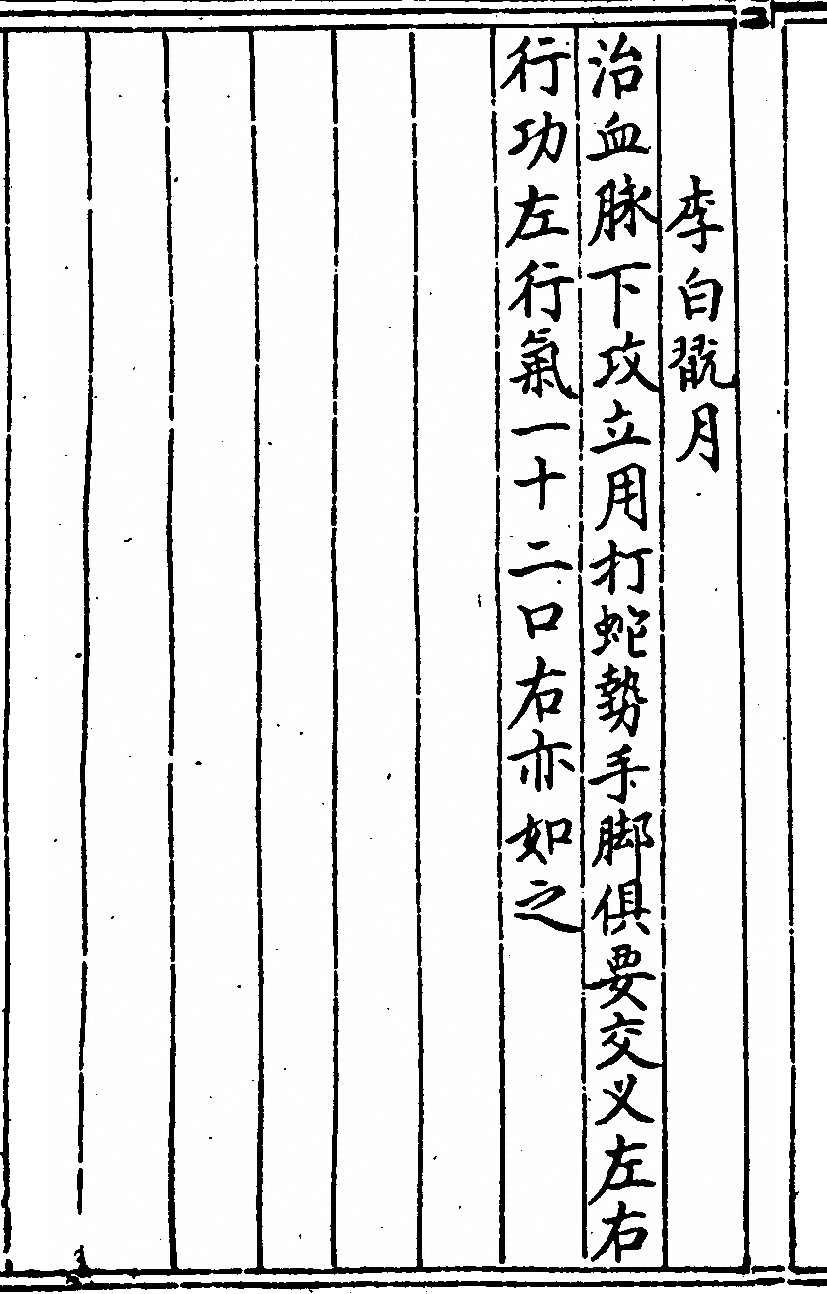 李白翫月
治血脉下攻立用打蛇勢手脚俱要交义左右
行功左行氣一十二口右亦如之